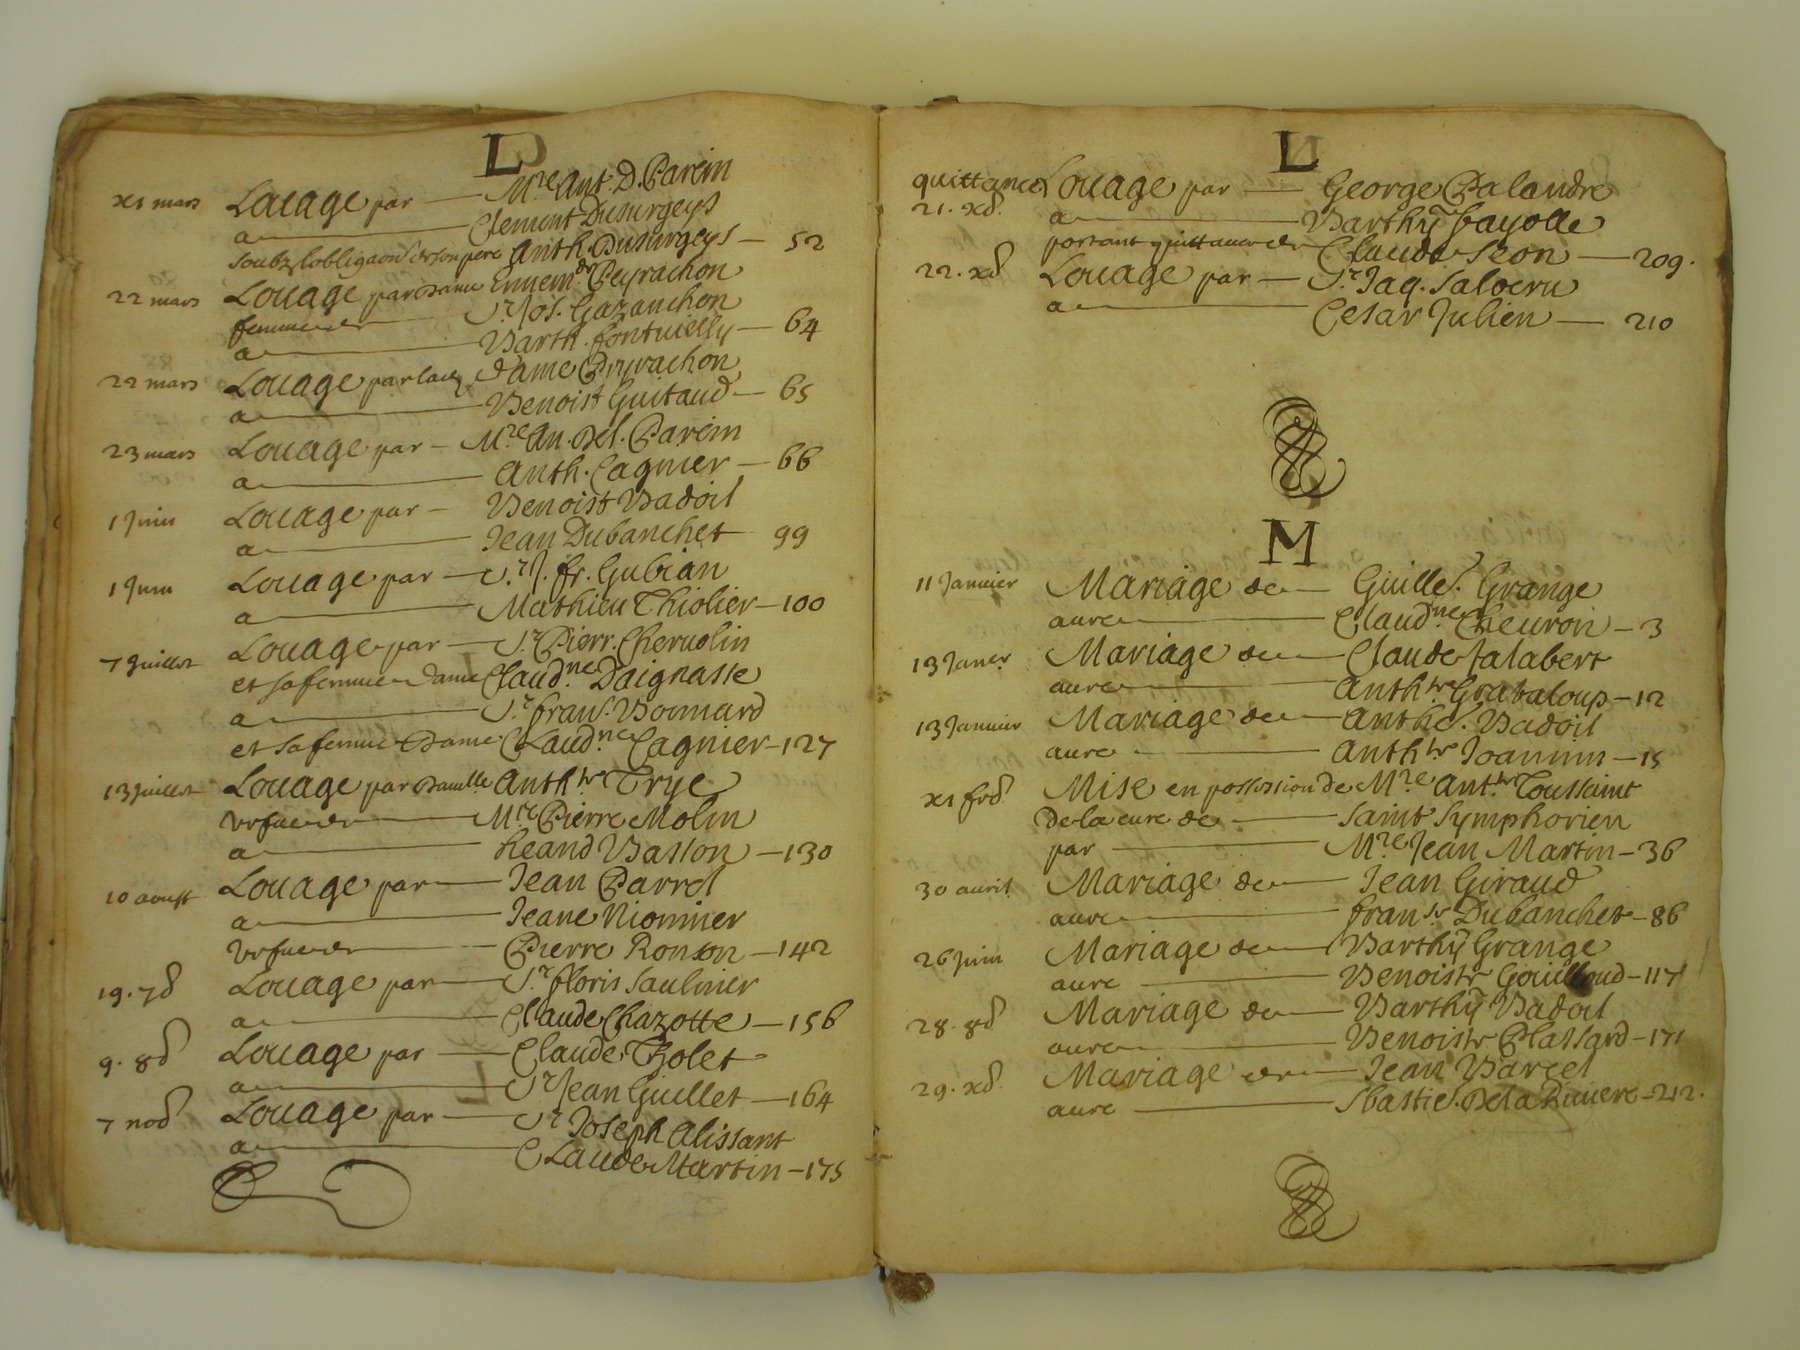 L
xi mars Louage par — Mre Ant. D. Parem
a — Clement Dusurgeys
soubz lobligaon de son pere Anth. Dusurgeys — 52
22 mars Louage par Dame Ennemde Peyrachon
femme de Sr Jos. Gazanchon
a — Barth. fontvielly — 64
22 mars Louage par lad. dame Peyrachon
a — Benoist Guitaud — 65
23 mars Louage par — Mre An. Del. Parem
a — Anth. Cagnier — 66
1 Juin Louage par — Benoist Badoil
a — Jean Dubanchet 99
1 Juin Louage par — Sr J. fr. Gubian
a — Mathieu Thiolier — 100
7 Juillet Louage par — Sr Pierr. Chervolin
et sa femme dame Claudne Daignasse
a — Sr frans. Bonnard
et sa femme Dame Claudne Cagnier — 127
13 Juillet Louage par Damlle Anthtte Trye
vefue de — Mre Pierre Molin
a — Leand Basson — 130
10 aoust Louage par — Jean Parrel
a — Jeane Niominer
vefue de — Pierre Ronson — 142
19. 7d Louage par — Sr floris Saulnier
a — Claude Chazotte — 156
9. 8d Louage par — Claude Tholet
a — Sr Jean Guillet — 164
7 nod Louage par — Sr Joseph Alissant
a — Claude Martin — 175
L
quittance Louage par — George Palandre
21. xd. a — Barthy fayolle
portant quittance de Claude Seon — 209.
22. xd Louage par — Sr Jaq. Salveru
a — Cesar Julien — 210
M
11 Janvier Mariage de — Guille. Grange
avec — Claudne Cheuron — 3
13 Janer Mariage de — Claude Jalabert
avec — Anthtte Grataloup — 12
13 Janvier Mariage de — Anthe. Badoil
avec — Anthtte Joannin — 15
xi frd. Mise en possession de Mre Ant. Toussaint
de la cure de — Saint Symphorien
par — Mre Jean Martin — 36
30 avril Mariage de — Jean Giraud
avec — franse Dubanchet — 86
26 Juin Mariage de — Barthy Grange
avec — Benoiste Gouilloud — 117
28. 8d Mariage de — Barthy Badoil
avec — Benoiste Plassard — 171
29. xd. Mariage de — Jean Barcel
avec — Sbastie. De la Riviere — 212.